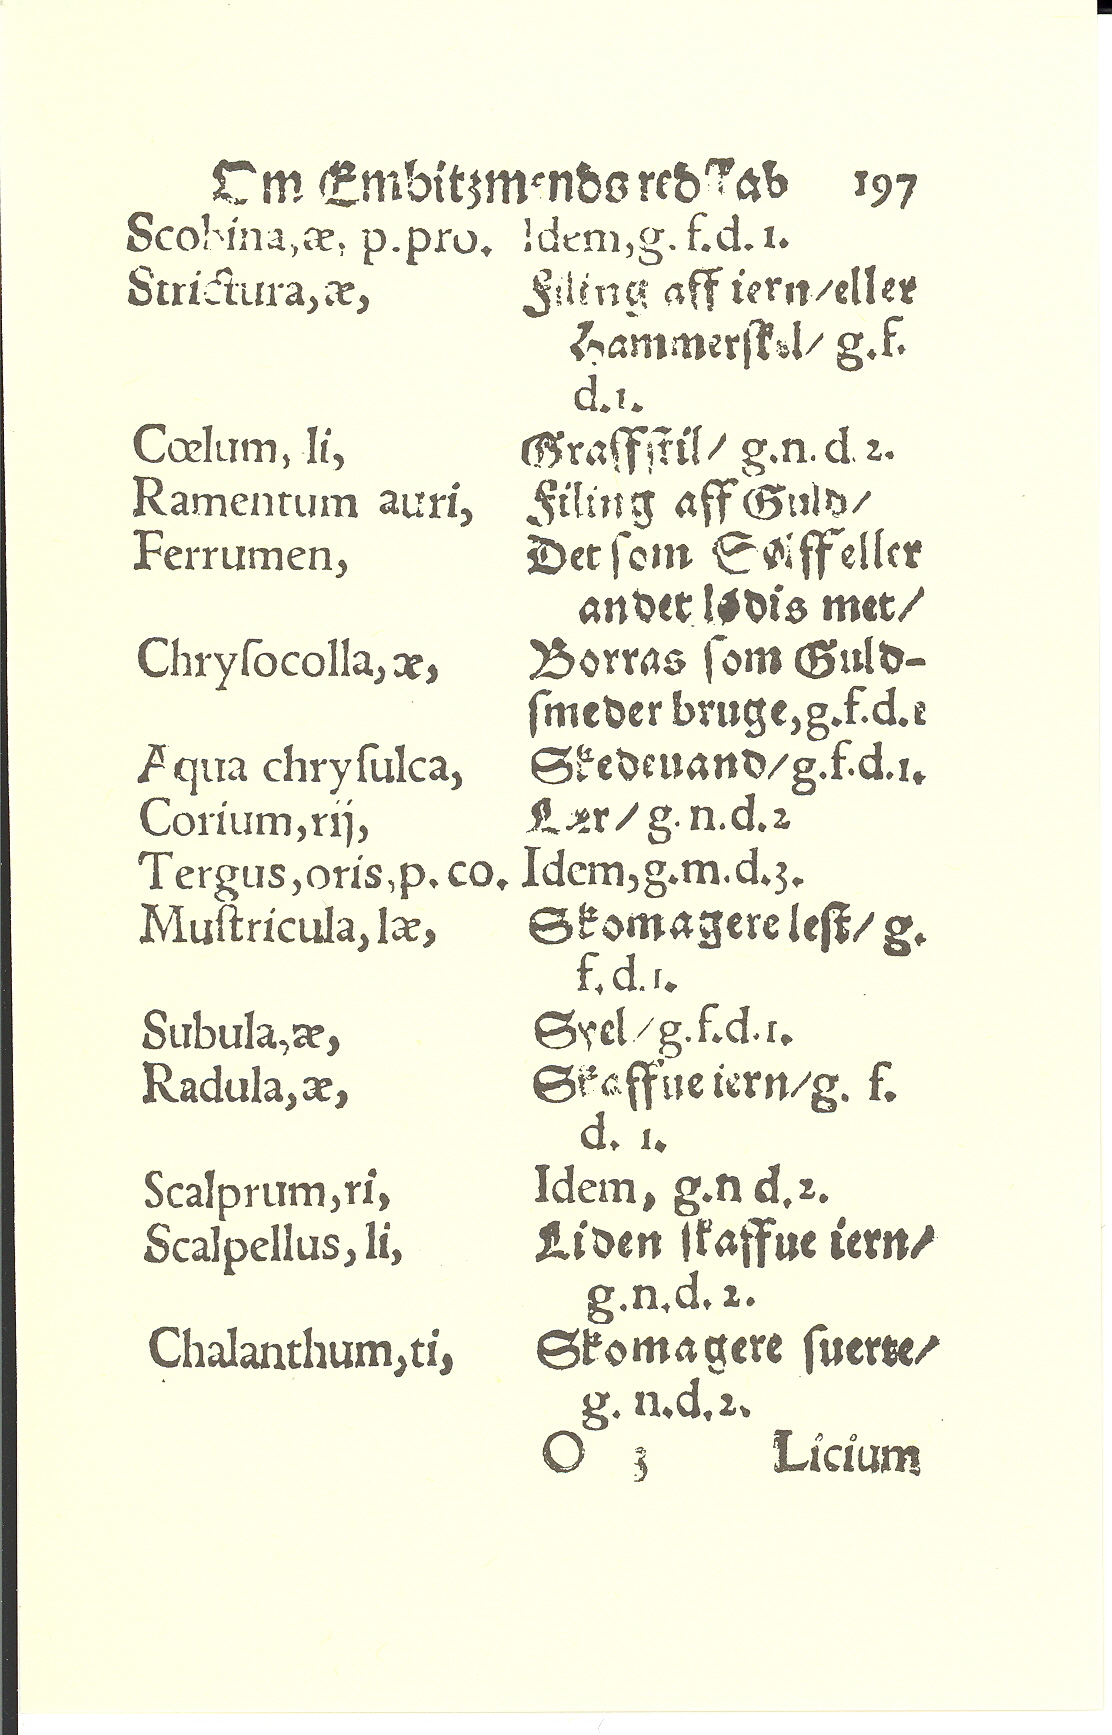 Om Embitzmends redskab 197
Scobina,æ, p.pro. Idem,g.f.d.1.
Strictura,æ, Filing aff iern/eller
Hammerſkel/ g.f.
d.1.
Cœlum, li, Graffſtil/ g.n.d.2.
Ramentum auri, Filing aff Guld/
Ferrumen, Det ſom Sølff eller
andet lødis met/
Chryſocolla,æ, Borras ſom Guld-
ſmeder bruge,g.f.d.
Aqua chryſulca, Skedeuand/g.f.d.1.
Corium,rij, Lær/ g.n.d.2
Tergus,oris,p.co. Idem,g.m.d.3.
Muſtricula,læ, Skomagere leſt/ g.
f.d.1.
Subula,æ, Syel/g.f.d.1.
Radula,æ, Skaffue iern/g. f.
d. 1.
Scalprum,ri, Idem, g.n d.2.
Scalpellus,li, Liden ſkaffue iern/
g.n.d.2.
Chalanthum,ti, Skomagere ſuerte/
g. n.d.2.
O 3 Licium